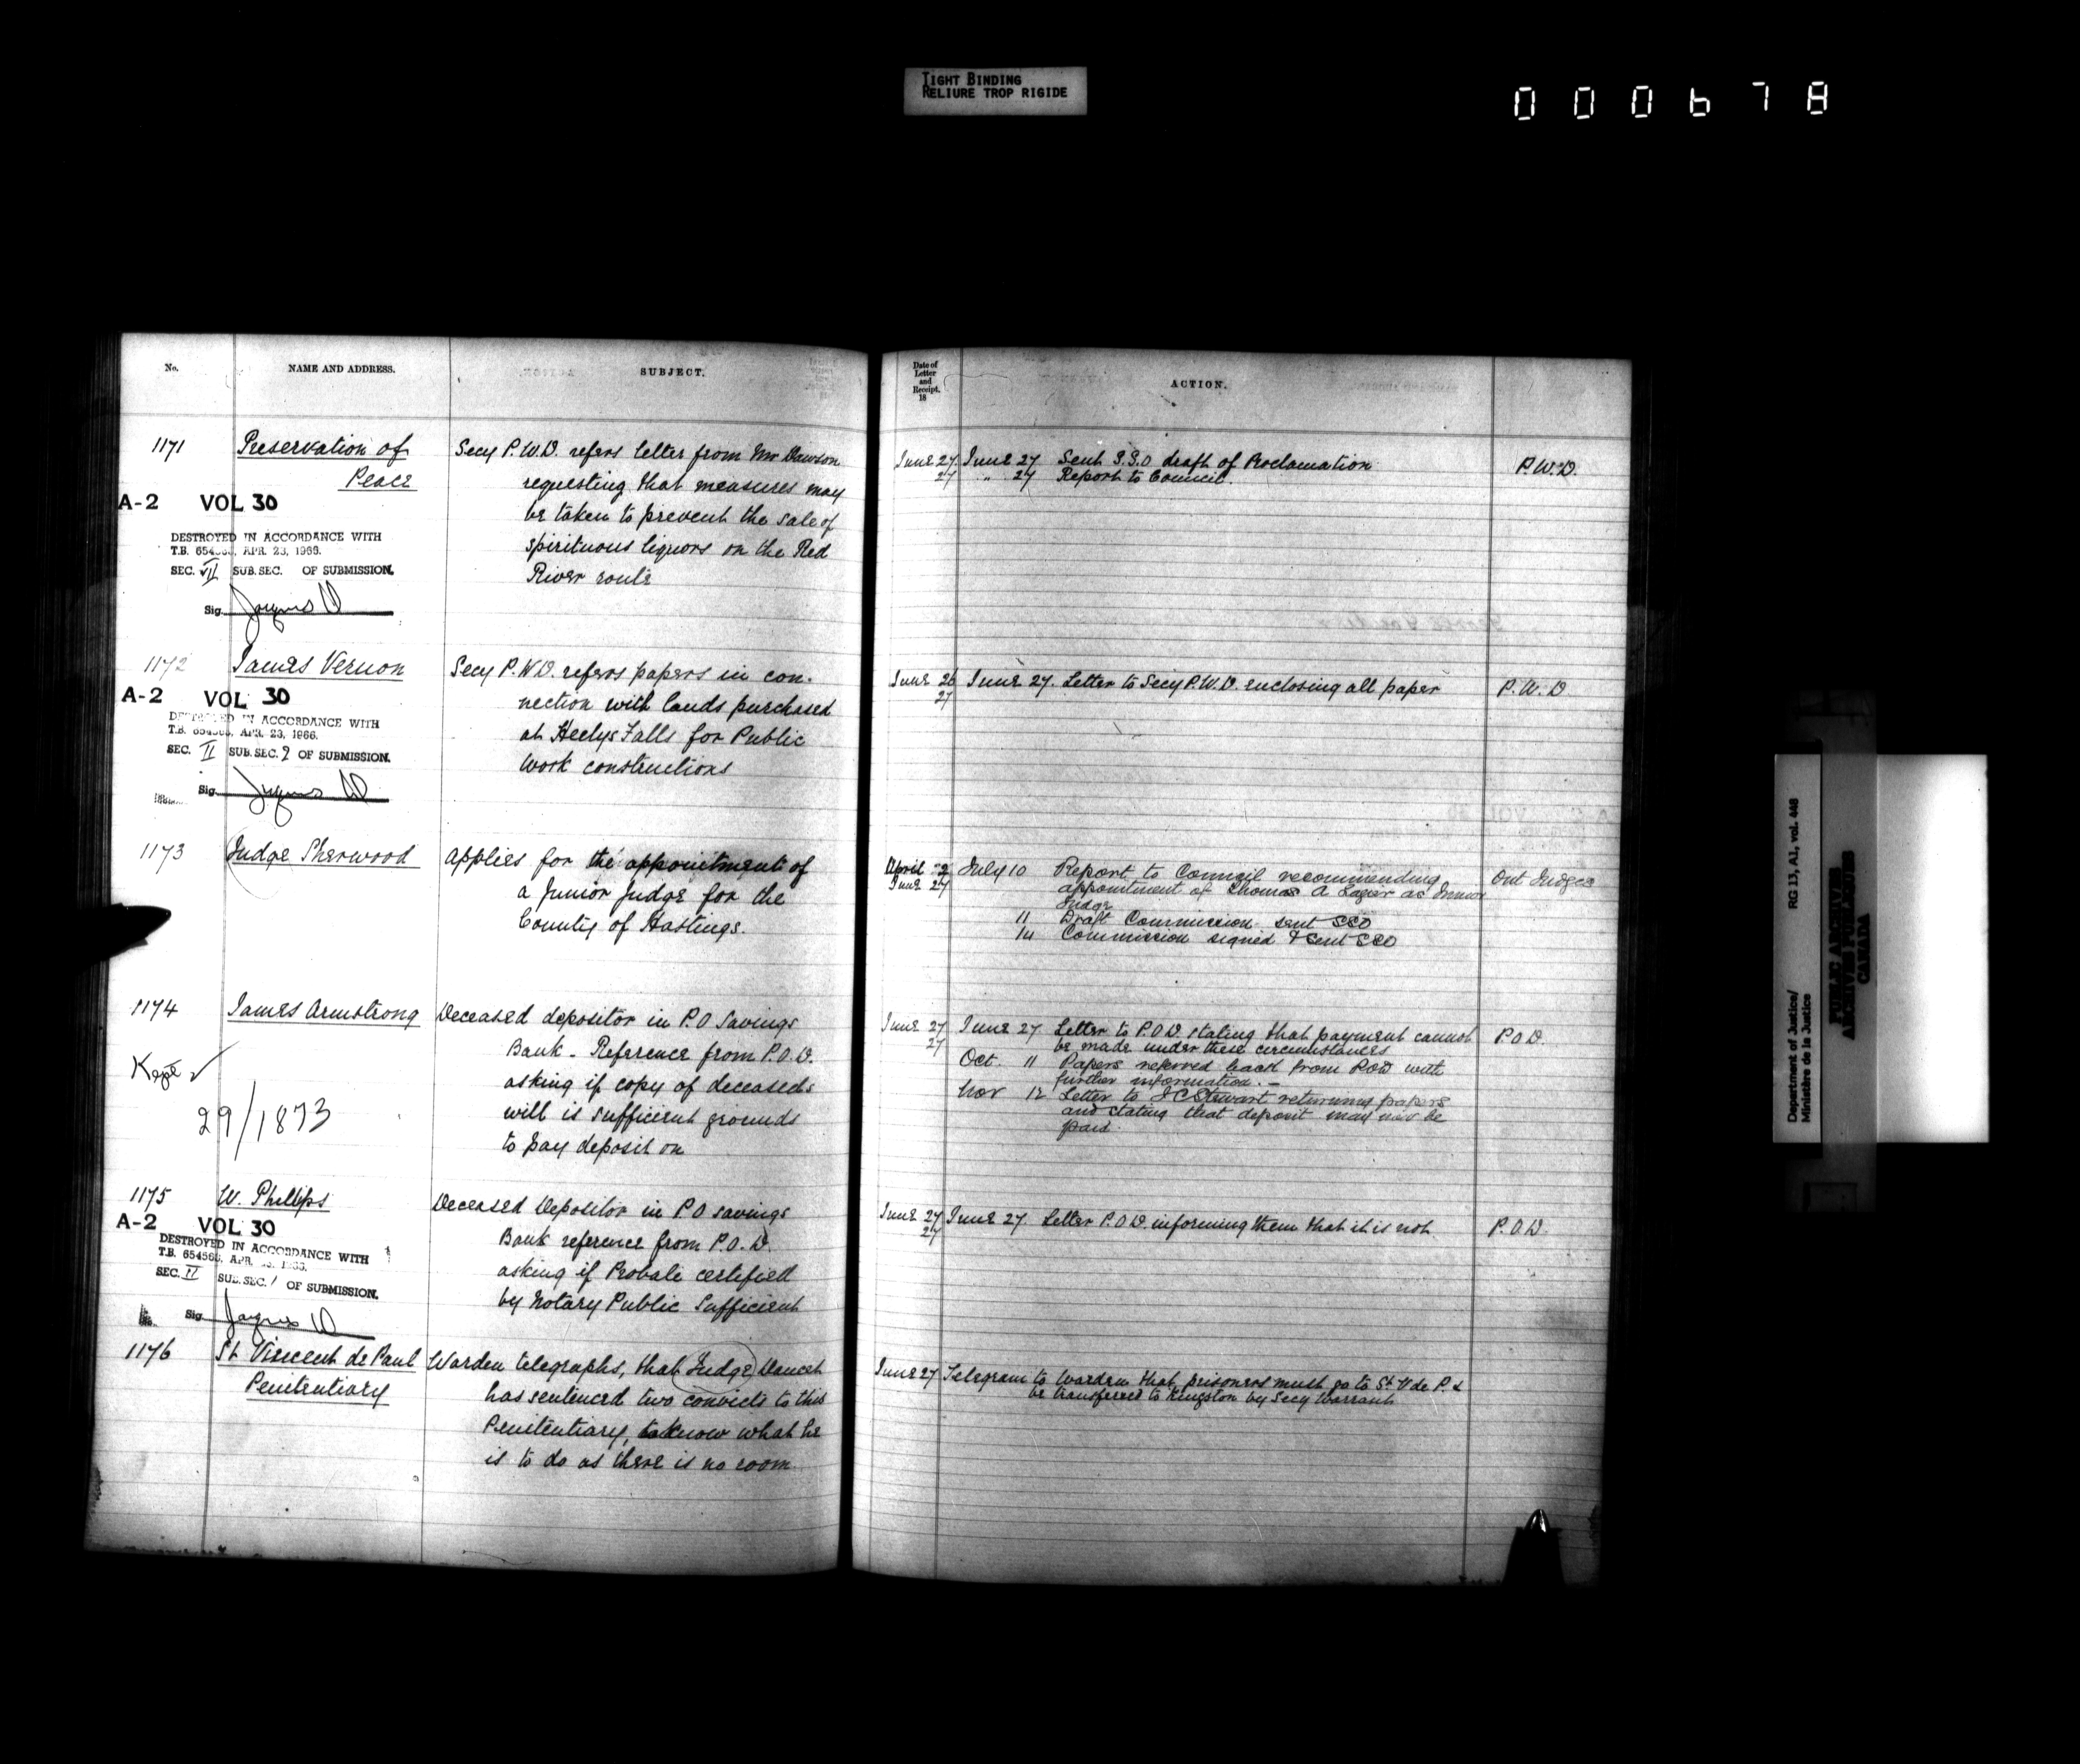 TIGHT BINDING
RELIURE TROP RIGIDE
000678
No.
NAME AND ADDRESS.
SUBJECT.
1171
Preservation of
Peace
A-2 VOL 30
DESTROYED IN ACCORDANCE WITH
T.B. 654568, APR. 23, 1966.
SEC. VII SUB. SEC. OF SUBMISSION.
Sig.
Secy P.W.D. refers letter from Mr Dawson
requesting that measures may
be taken to prevent the sale of
spirituous liquors on the Red
River route
1172
James Vernon
A-2 VOL 30
DESTROYED IN ACCORDANCE WITH
T.B. 654568, APR. 23, 1966.
SEC. II SUB. SEC. 2 OF SUBMISSION.
Sig.
Secy P.W.D. refers papers in con-
nection with lands purchased
at Heelys Falls for Public
work constructions
1173
Judge Sherwood
Applies for the appointment of
a Junior Judge for the
County of Hastings.
1174
James Armstrong
Kept ✓
29/1873
Deceased depositor in P.O Savings
Bank - Reference from P.O.D.
asking if copy of deceaseds
will is sufficient grounds
to pay deposit on
1175
W. Phillips
A-2 VOL 30
DESTROYED IN ACCORDANCE WITH
T.B. 654568, APR. 23, 1966.
SEC. II SUB. SEC. 1 OF SUBMISSION.
Sig.
Deceased Depositor in P O savings
Bank reference from P.O.D.
asking if Probate certified
by Notary Public Sufficient
1176
St Vincent de Paul
Penitentiary
Warden telegraphs, that Judge
has sentenced two convicts to this
Penitentiary, to know what he
is to do as there is no room
Date of
Letter
and
Receipt.
18
ACTION.
June 27 June 27 Sent S.S.O draft of Proclamation P.W.D.
27 " 27 Report to Council.
June 26 June 27. Letter to Secy P.W.D. enclosing all paper P.W.D
27
April 2 July 10 Report to Council recommending Ont Judges
June 27 appointment of Thomas A Lazier as Junior
Judge
11 Draft Commission sent SSO
14 Commission signed & sent SSO
June 27 June 27 Letter to P.O.D. stating that payment cannot P O D.
27 be made under these circumstances
Oct. 11 Papers referred back from POD with
further information. -
Nov 12 Letter to J C Stewart returning papers
and stating that deposit may now be
paid.
June 27 June 27. Letter P.O.D. informing them that it is not P.O.D.
27
June 27 Telegram to Warden that prisoners must go to St V de P. &
be transferred to Kingston by Secy Warrant
Department of Justice/
Ministère de la Justice
RG 13, A1, vol. 448
PUBLIC ARCHIVES
ARCHIVES PUBLIQUES
CANADA